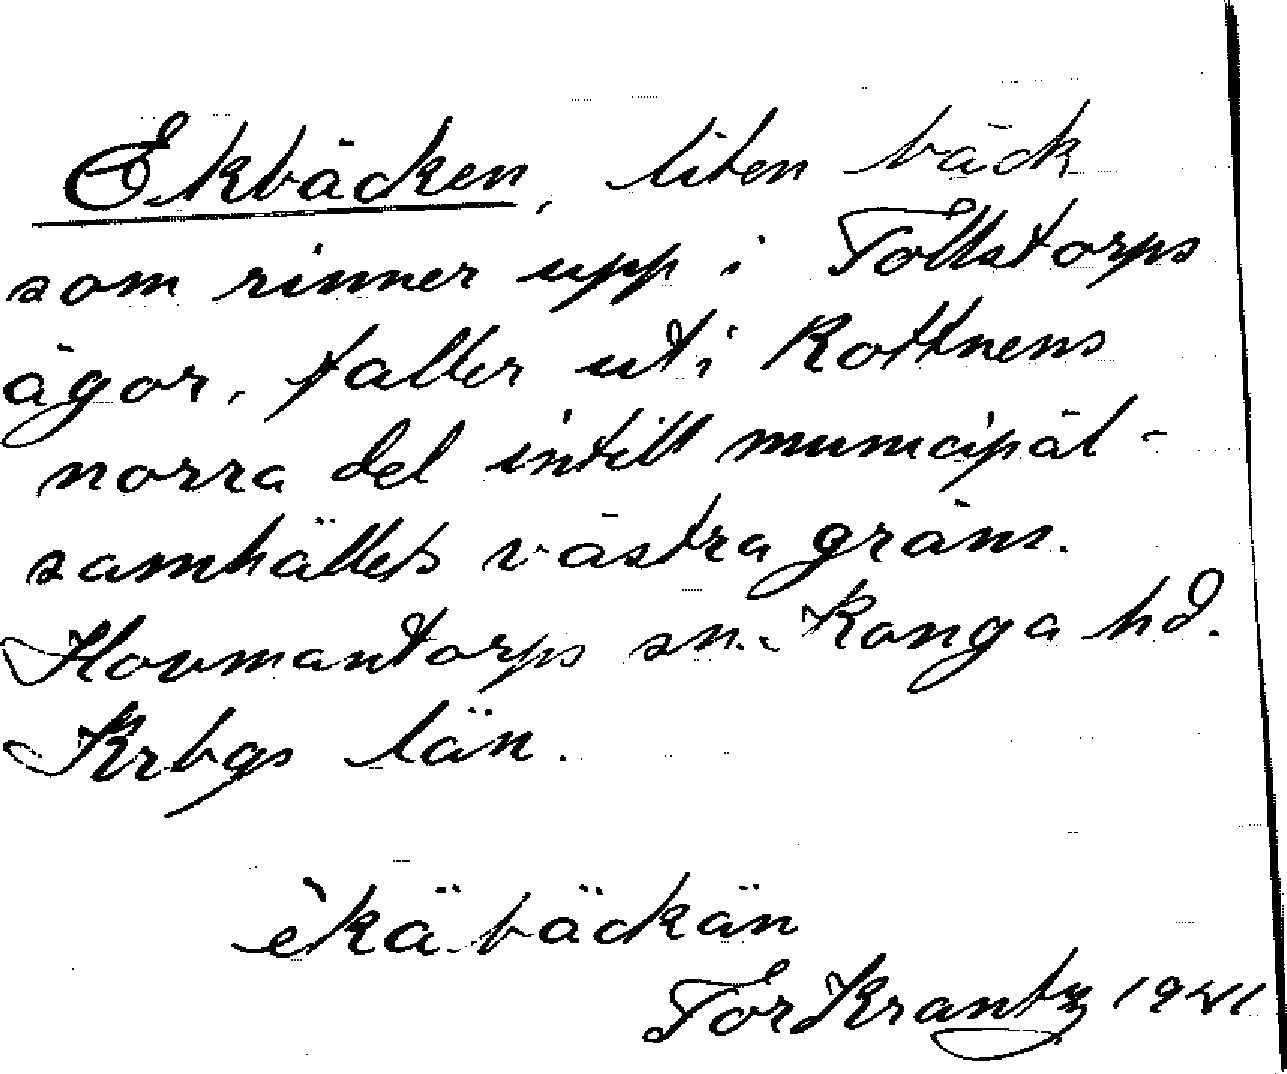 Ekbäcken, liten bäck
som rinner upp i Tollstorps
ägor, faller ut i Rottnens
norra del intill municipal-
samhällets västra gräns.
Hovmantorps sn. Konga hd.
Krbgs län.
èkäbäckän
Tor Krantz 1941